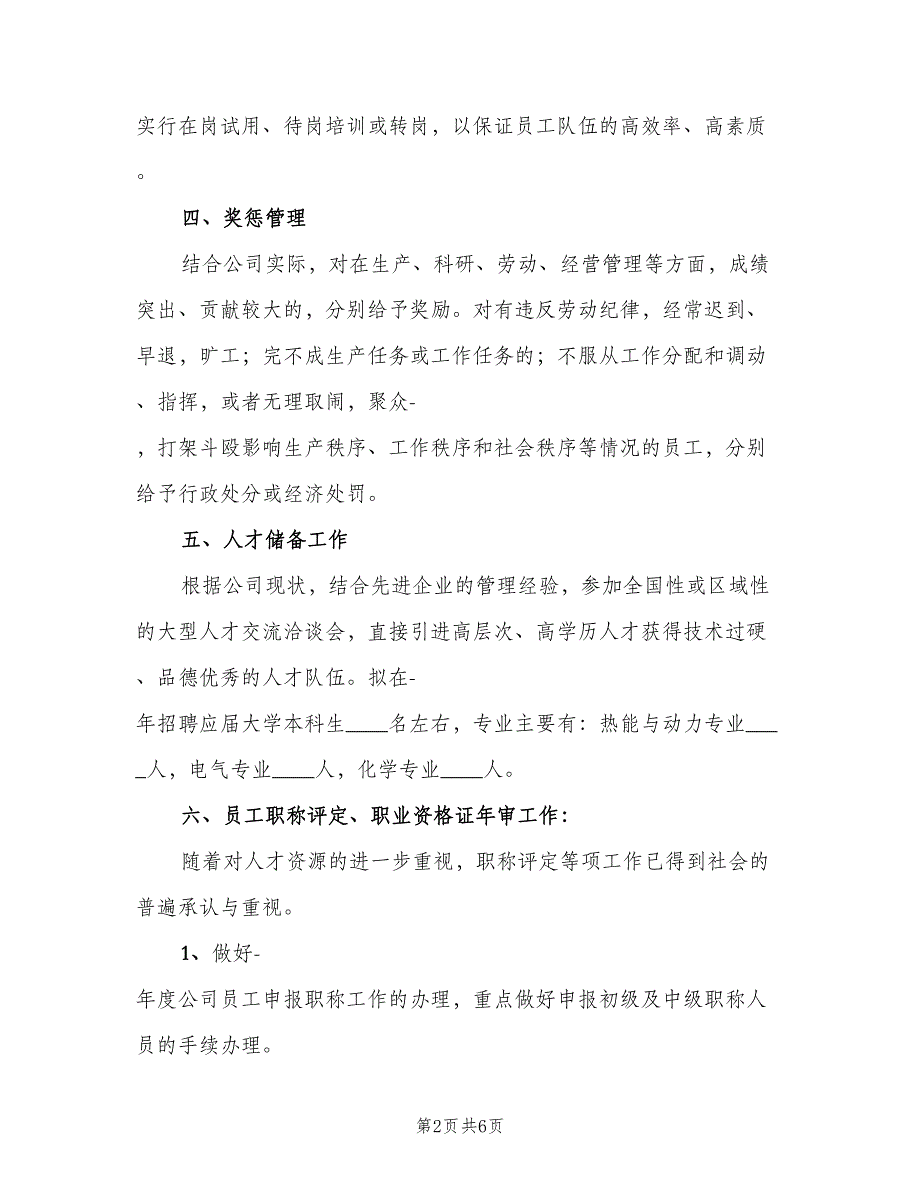 实行在岗试用、待岗培训或转岗，以保证员工队伍的高效率、高素质
。
四、奖惩管理
结合公司实际，对在生产、科研、劳动、经营管理等方面，成绩
突出、贡献较大的，分别给予奖励。对有违反劳动纪律，经常迟到、
早退，旷工；完不成生产任务或工作任务的；不服从工作分配和调动
、指挥，或者无理取闹，聚众-
，打架斗殴影响生产秩序、工作秩序和社会秩序等情况的员工，分别
给予行政处分或经济处罚。
五、人才储备工作
根据公司现状，结合先进企业的管理经验，参加全国性或区域性
的大型人才交流洽谈会，直接引进高层次、高学历人才获得技术过硬
、品德优秀的人才队伍。拟在-
年招聘应届大学本科生____名左右，专业主要有：热能与动力专业___
_人，电气专业____人，化学专业____人。
六、员工职称评定、职业资格证年审工作：
随着对人才资源的进一步重视，职称评定等项工作已得到社会的
普遍承认与重视。
1、做好-
年度公司员工申报职称工作的办理，重点做好申报初级及中级职称人
员的手续办理。
第2页共6页